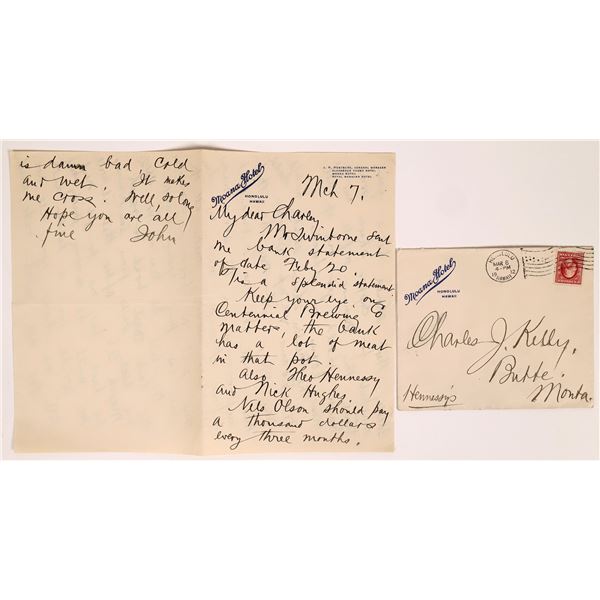 is damn bad. Cold
and wet. It makes
me cross. Well, so long
Hope you are all
fine John
Moana Hotel
HONOLULU
HAWAII
GENERAL MANAGER
ALEXANDER YOUNG HOTEL
MOANA HOTEL
ROYAL HAWAIIAN HOTEL
Mch 7.
My dear Charley
Mr Swinborne sent
me bank statement
of date Feby 20.
is a splendid statement
Keep your eye on
Centennial Brewing Co
matters, the bank
has a lot of meat
in that pot.
Also Theo Hennessy
and Nick Hughes.
Nils Olson should pay
a thousand dollars
every three months.
Moana Hotel
HONOLULU
HAWAII
HONOLULU
MAR 6
4-PM
1912
HAWAII
Charles J. Kelly,
Butte.
Hennessy's
Monta.